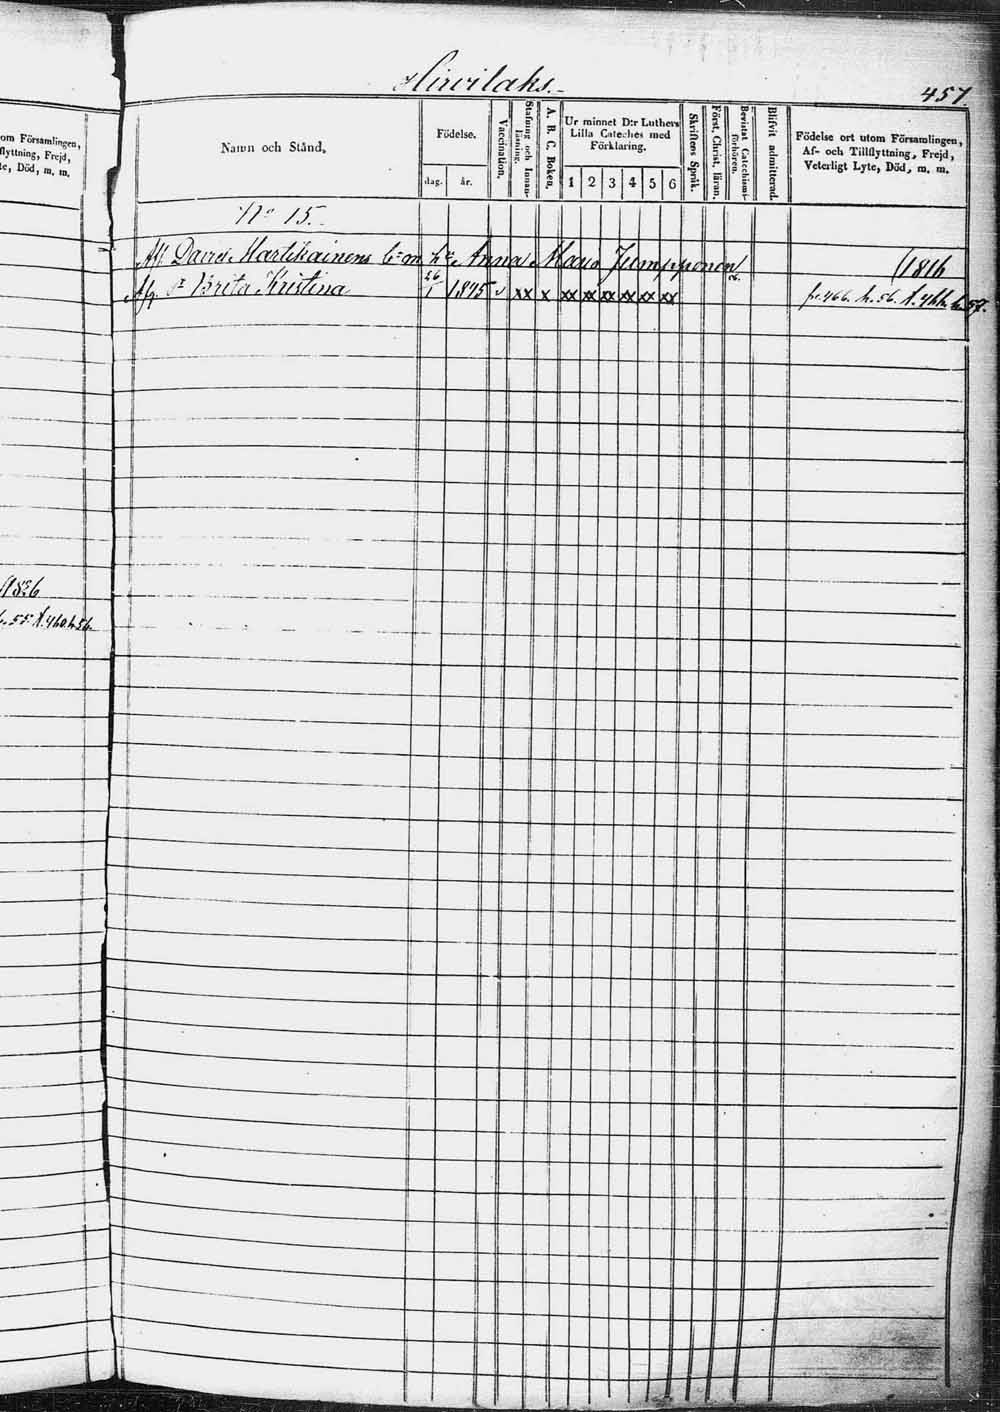 Hirvilaks.
457.
om Församlingen,
flyttning, Frejd,
te, Död, m. m.
Namn och Stånd,
Födelse.
dag. år.
Vaccination.
Stafning och Innan-
läsning.
A. B. C. Boken.
Ur minnet D:r Luthers
Lilla Cateches med
Förklaring.
1 2 3 4 5 6
Skriftens Språk.
Förest. Christ. läran.
Bevistat Catechismi-
förhören.
Blifvit admitterad.
Födelse ort utom Församlingen,
Af- och Tillflyttning, Frejd,
Veterligt Lyte, Död, m. m.
No 15.
David Martikainens Anna Jumpponen
(1816
Afg. Brita Kristina 26/1 1845 v xx x xx xx xx xx xx xx fr. 466. h. 56. t. 466. h. 57.
1836
h. 55. t. 460. h. 56.